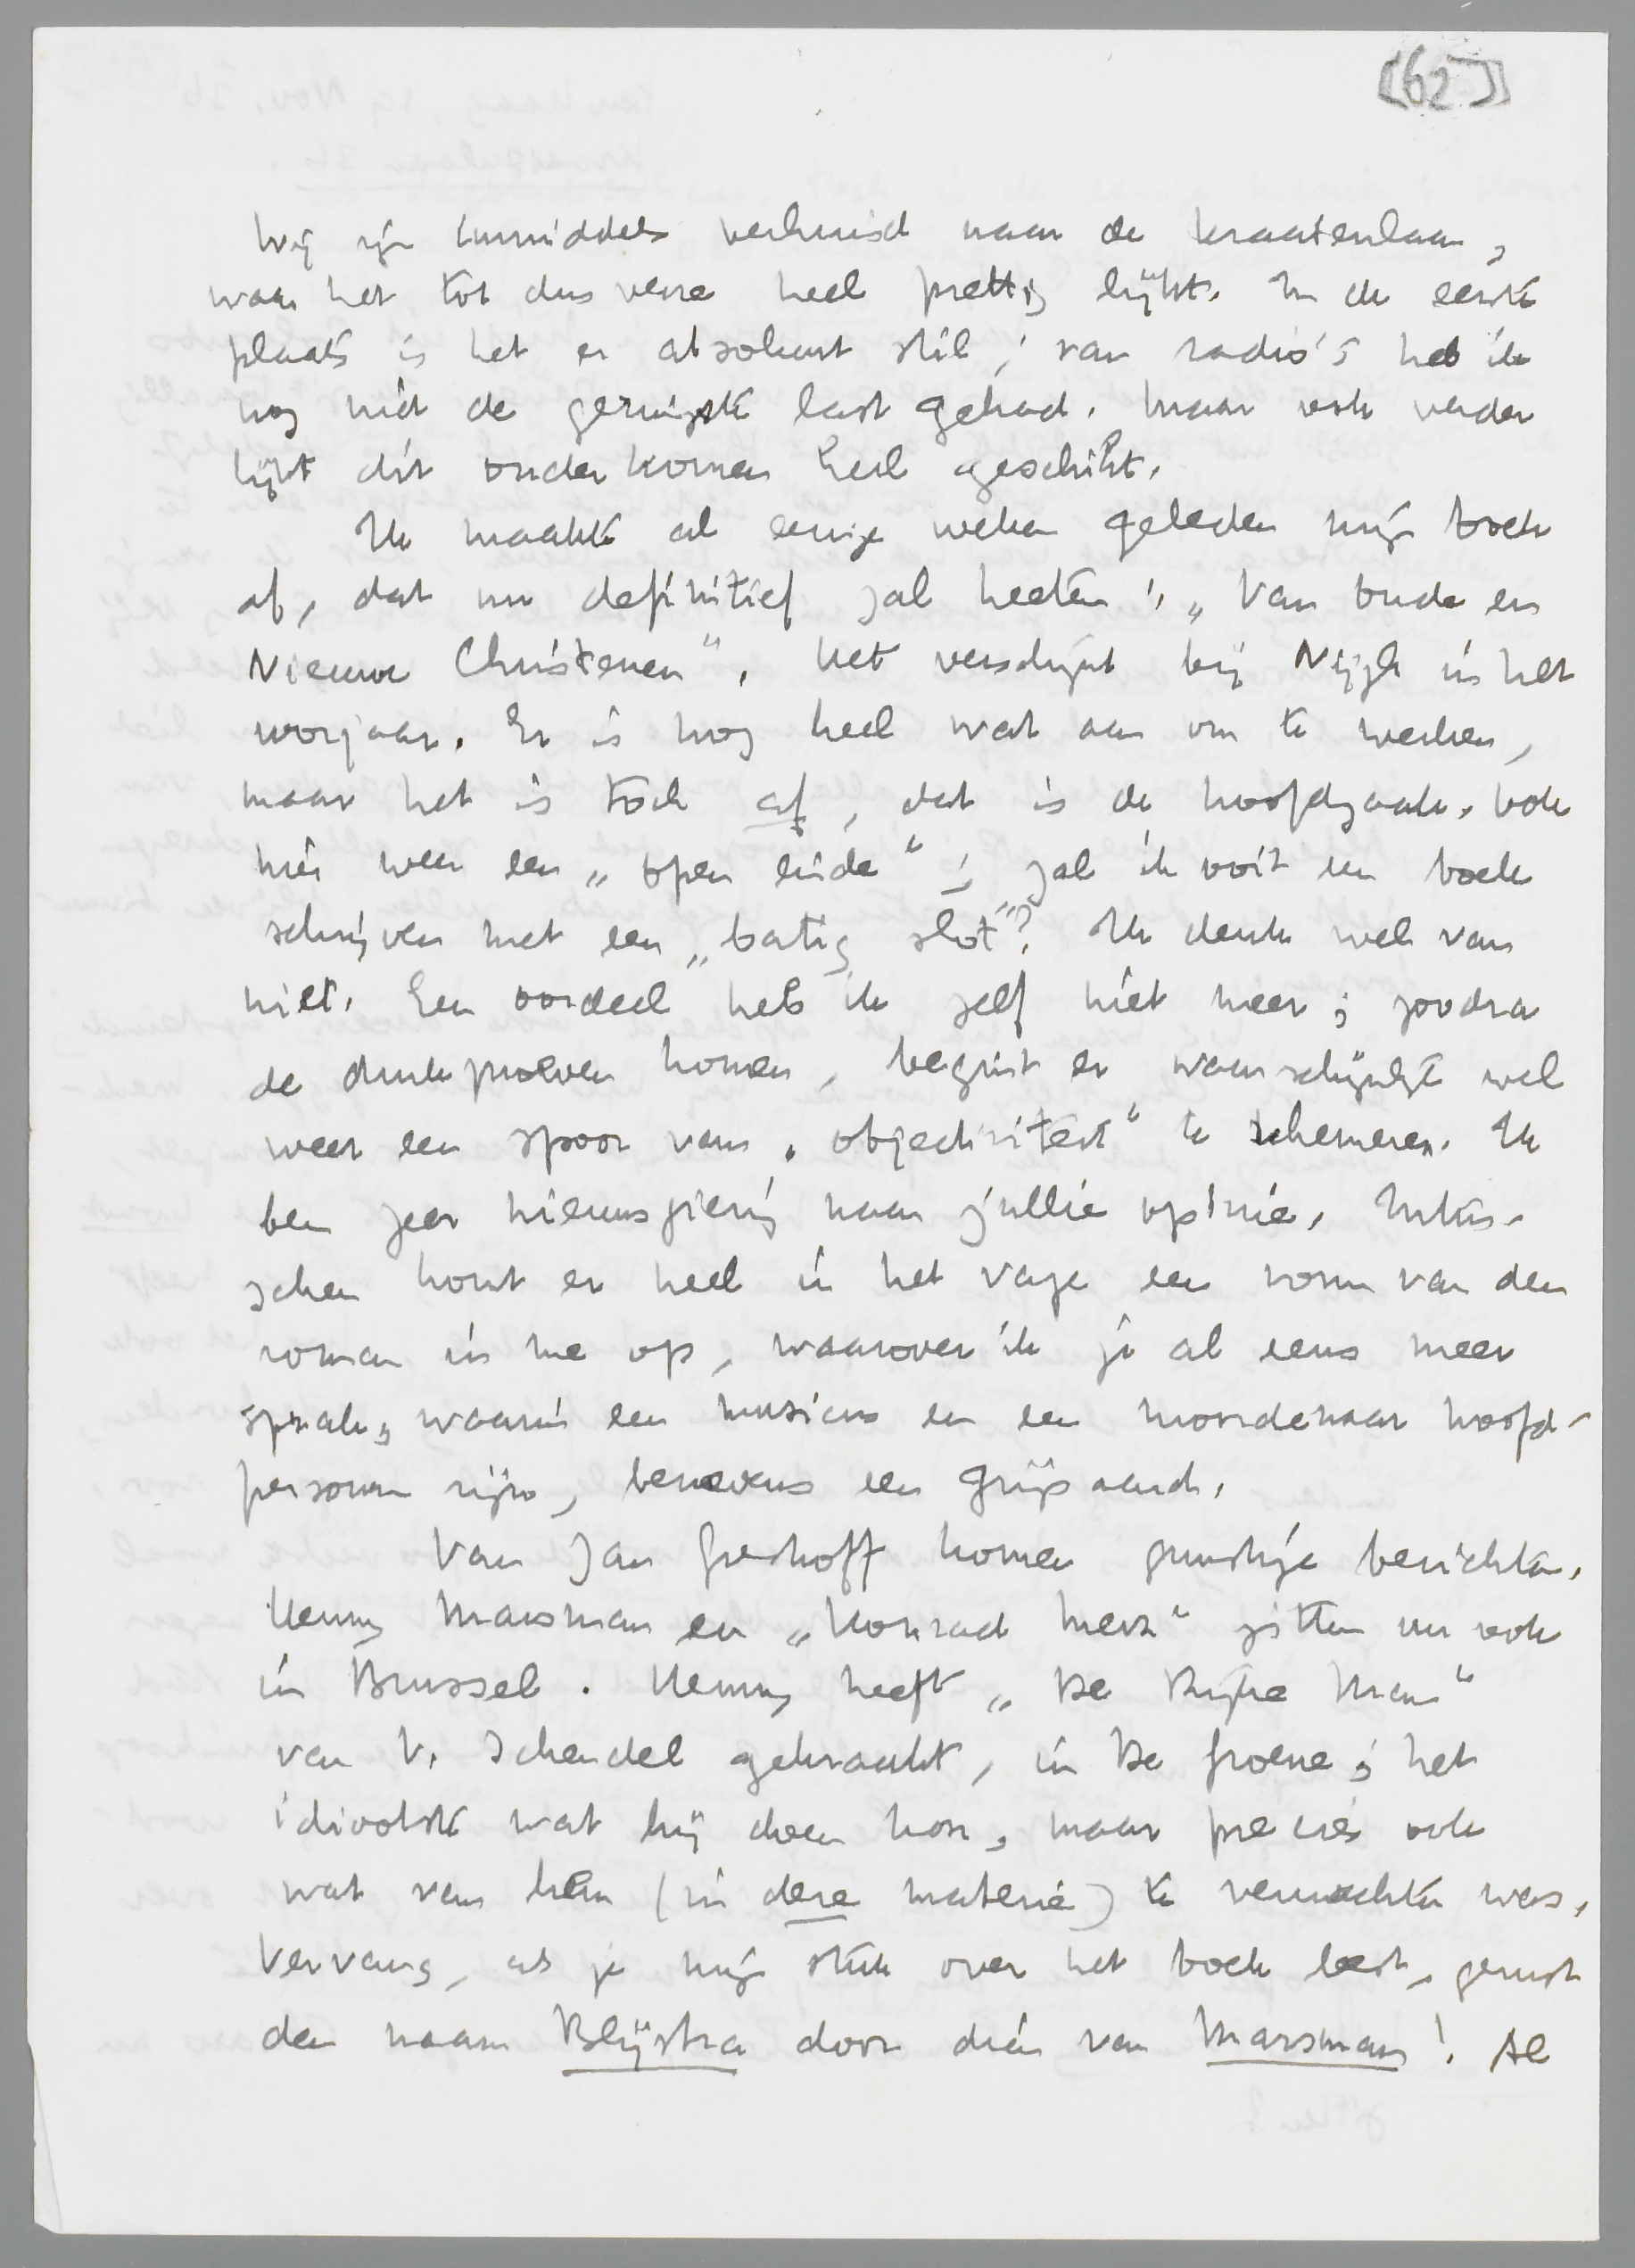 [62]
Wij zijn inmiddels verhuisd naar de Kraaienlaan,
waar het tot dusverre heel prettig lijkt. In de eerste
plaats is het er absoluut stil; van radio's heb ik
nog niet de geringste last gehad. Maar ook verder
lijkt dit onderkomen heel geschikt.
Ik maakte al eenige weken geleden mijn boek
af, dat nu definitief zal heeten: „Van Oude en
Nieuwe Christenen". Het verschijnt bij Nijgh in het
voorjaar. Er is nog heel wat aan om te werken,
maar het is toch af, dat is de hoofdzaak. Ook
hier weer een „open einde"; zal ik ooit een boek
schrijven met een „batig slot"? Ik denk wel van
niet. Een oordeel heb ik zelf niet meer; zoodra
de drukproeven komen, begint er waarschijnlijk wel
weer een spoor van „objectiviteit" te schemeren. Ik
ben zeer nieuwsgierig naar jullie opinie. Intus-
schen komt er heel in het vage een vorm van den
roman in me op, waarover ik je al eens meer
sprak, waarin een musicus en een moordenaar hoofd-
personen zijn, benevens een grijsaard.
Van Jan Greshoff komen gunstige berichten.
Henny Marsman en „Konrad Merz" zitten nu ook
in Brussel. Henny heeft „De Rijke Man"
van v. Schendel gekraakt, in De Groene; het
idiootste wat hij doen kon, maar precies ook
wat van hem (in deze materie) te verwachten was.
Vervang, als je mijn stuk over het boek leest, gerust
den naam Blijstra door dien van Marsman! Al